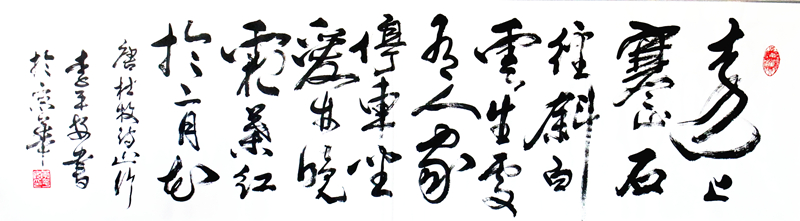 遠上
寒山石
徑斜白
雲生處
有人家
停車坐
愛晚
霜葉紅
於二月花
唐杜牧詩山行
李書
於京華